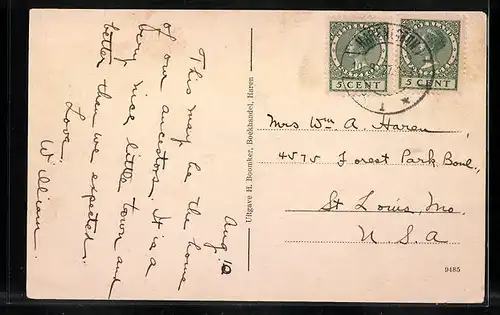 Aug. 10
This may be the home
of our ancestors. It is a
very nice little town and
better than we expected.
Love
William
Uitgave H. Boomker, Boekhandel, Haren
5 CENT
5 CENT
1 *
Mrs Wm A. Haren
4575 Forest Park Boul.,
St Louis, Mo.
U.S.A
9485